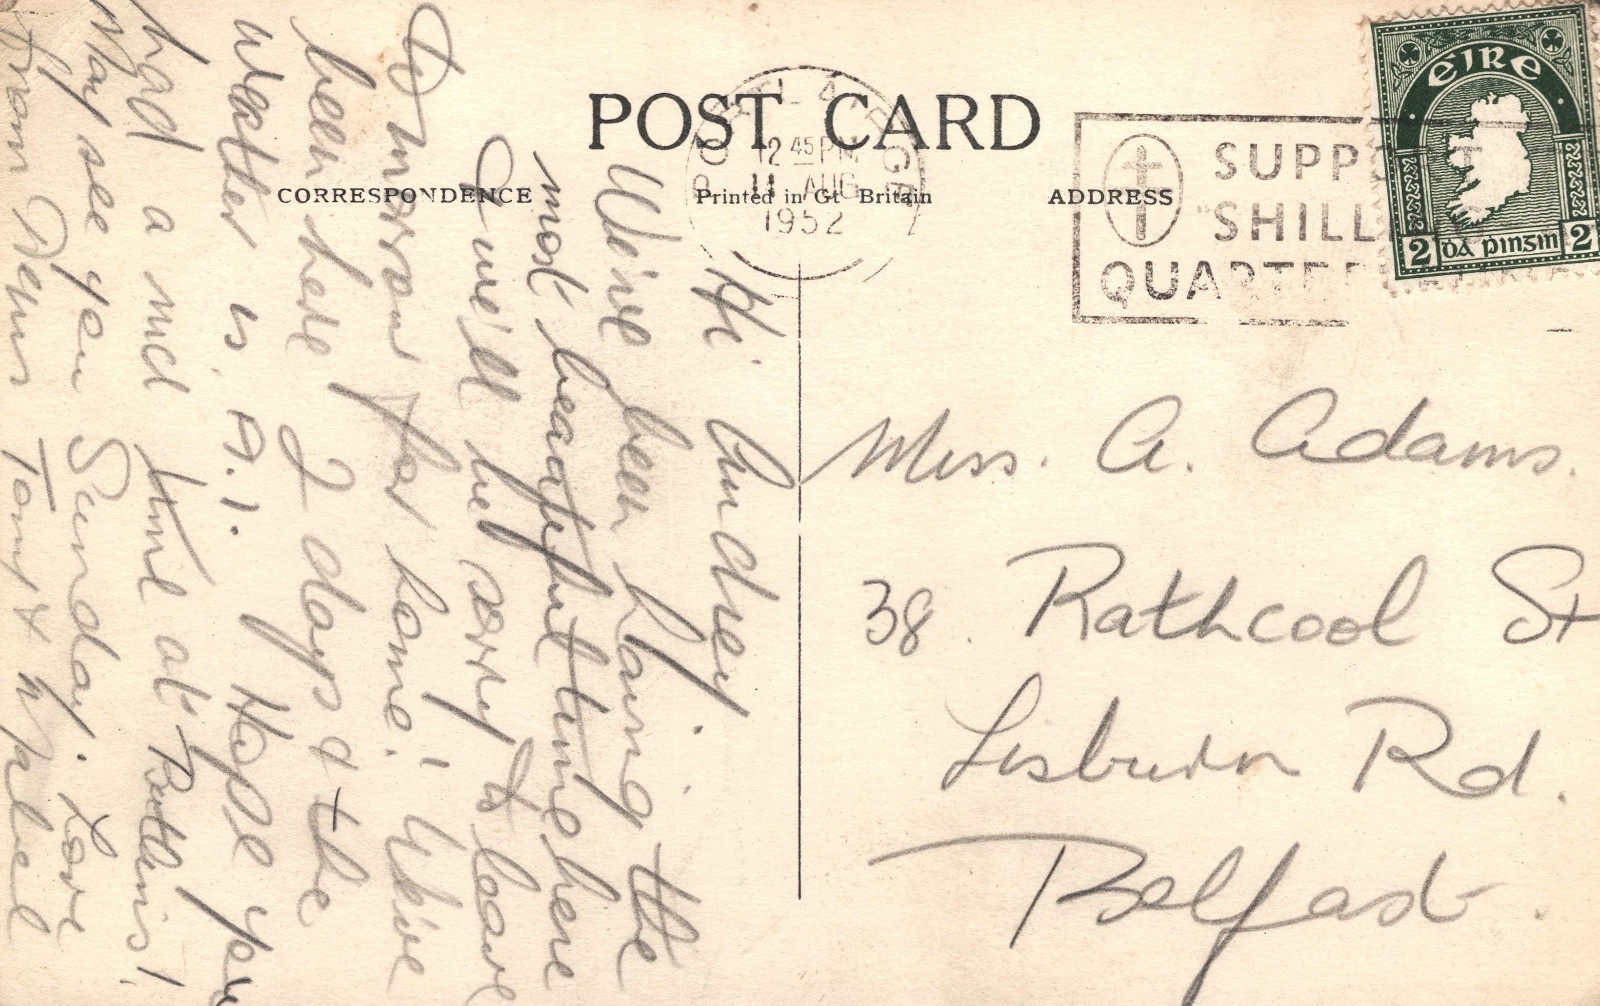 POST CARD
CORRESPONDENCE
Printed in Gt Britain
ADDRESS
12 45 PM
11 AUG
1952
SUPPORT
"SHILL
QUARTER
EIRE
2 ÓÁ PINSIN 2
Hi Audrey.
We've been having the
most beautiful time here
& we'll be sorry to leave
to-morrow for home. We've
been here 2 days & the
weather is A.1. Hope you
had a nice time at Butlins!
May see you Sunday. Love
from Tony & Mabel
Miss. A. Adams.
38. Rathcool St
Lisburn Rd.
Belfast.